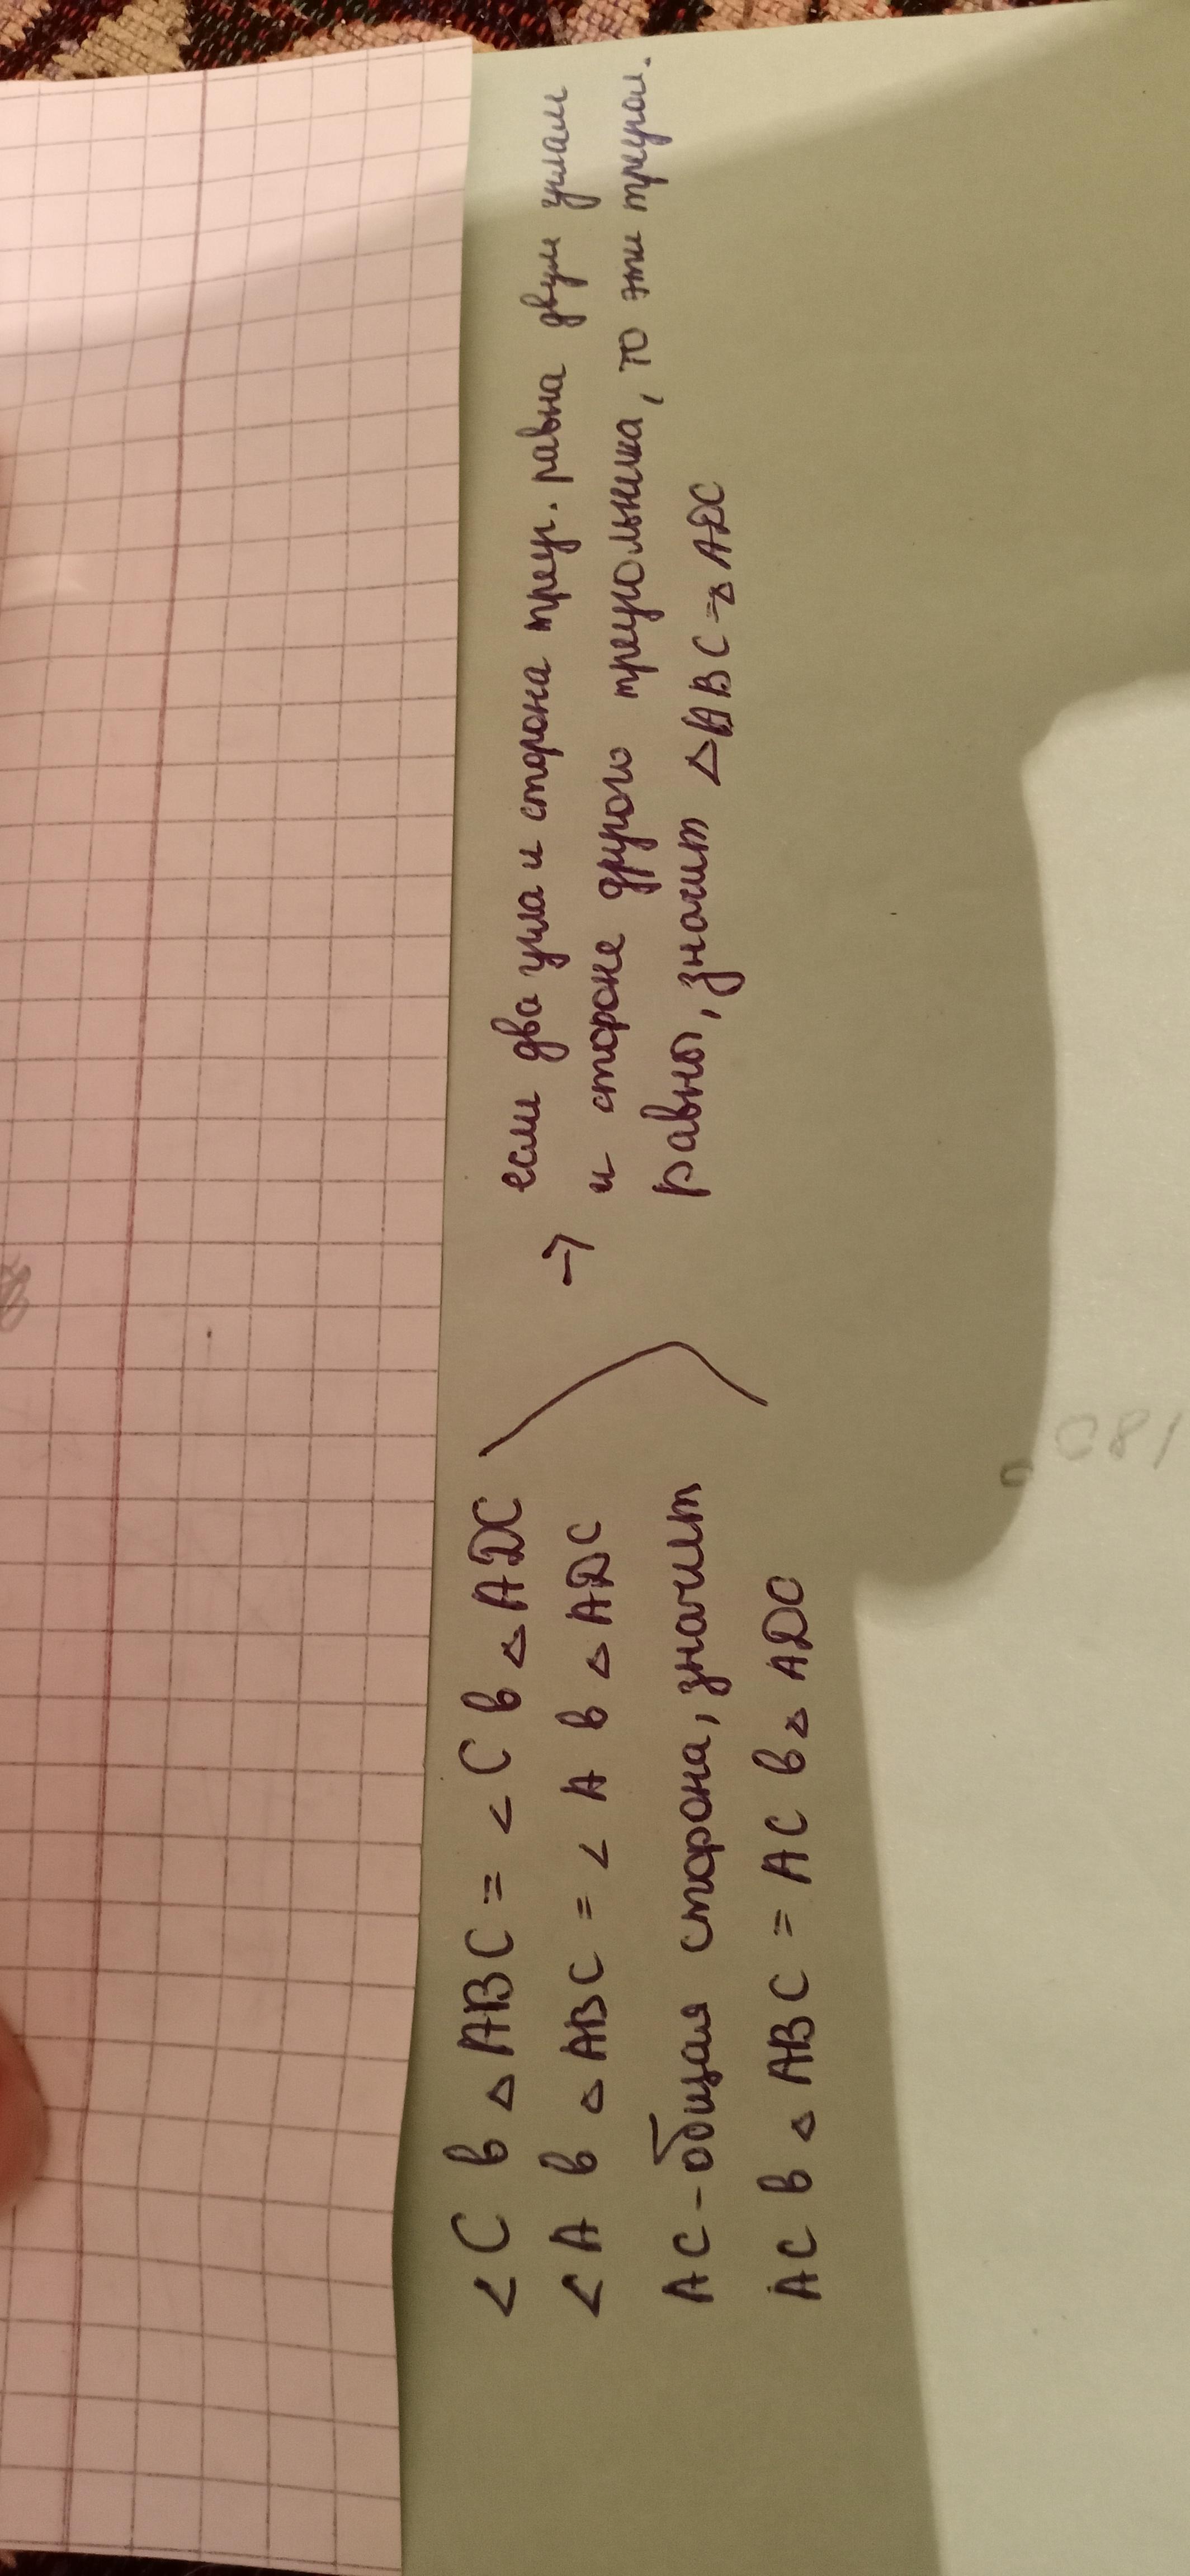 <C в △ABC = <C в △ADC
<A в △ABC = <A в △ADC
AC - общая сторона, значит
AC в △ABC = AC в △ADC
→ если два угла и сторона треуг. равна двум углам
и стороне другого треугольника, то эти треугол.
равны, значит △ABC = △ADC
081